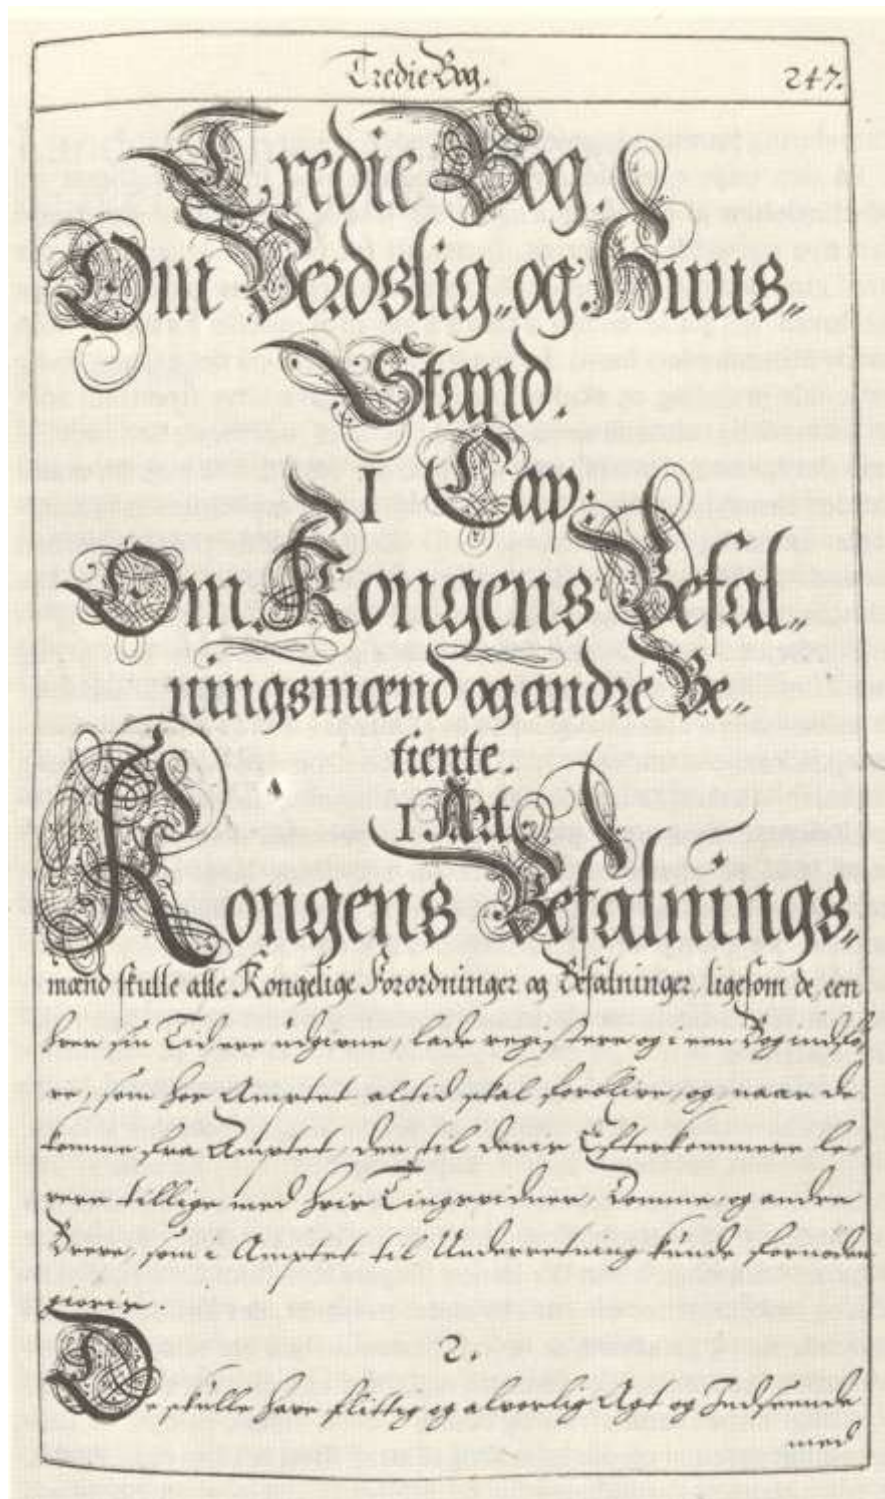 Tredie Bog. 247.
Tredie Bog.
Om Verdslig„ og Huus„
Stand.
1 Cap.
Om Kongens Befal„
ningsmænd og andre Be„
tiente.
1 Art.
Kongens Befalnings„
mænd skulle alle Kongelige Forordninger og Befalninger, ligesom de, een
hver sin Tid ere udgivne, lade registere og i een Bog indfø„
re, som hos Amptet altid skal forblive, og naar de
komme fra Amptet, den til deris Efterkommere le„
vere tillige med hvis Tingsvidner, Domme, og andre
Breve, som i Amptet til Underretning kunde fornøden
giøris.
2.
De skulle have flittig og alvorlig Agt og Indseende
med